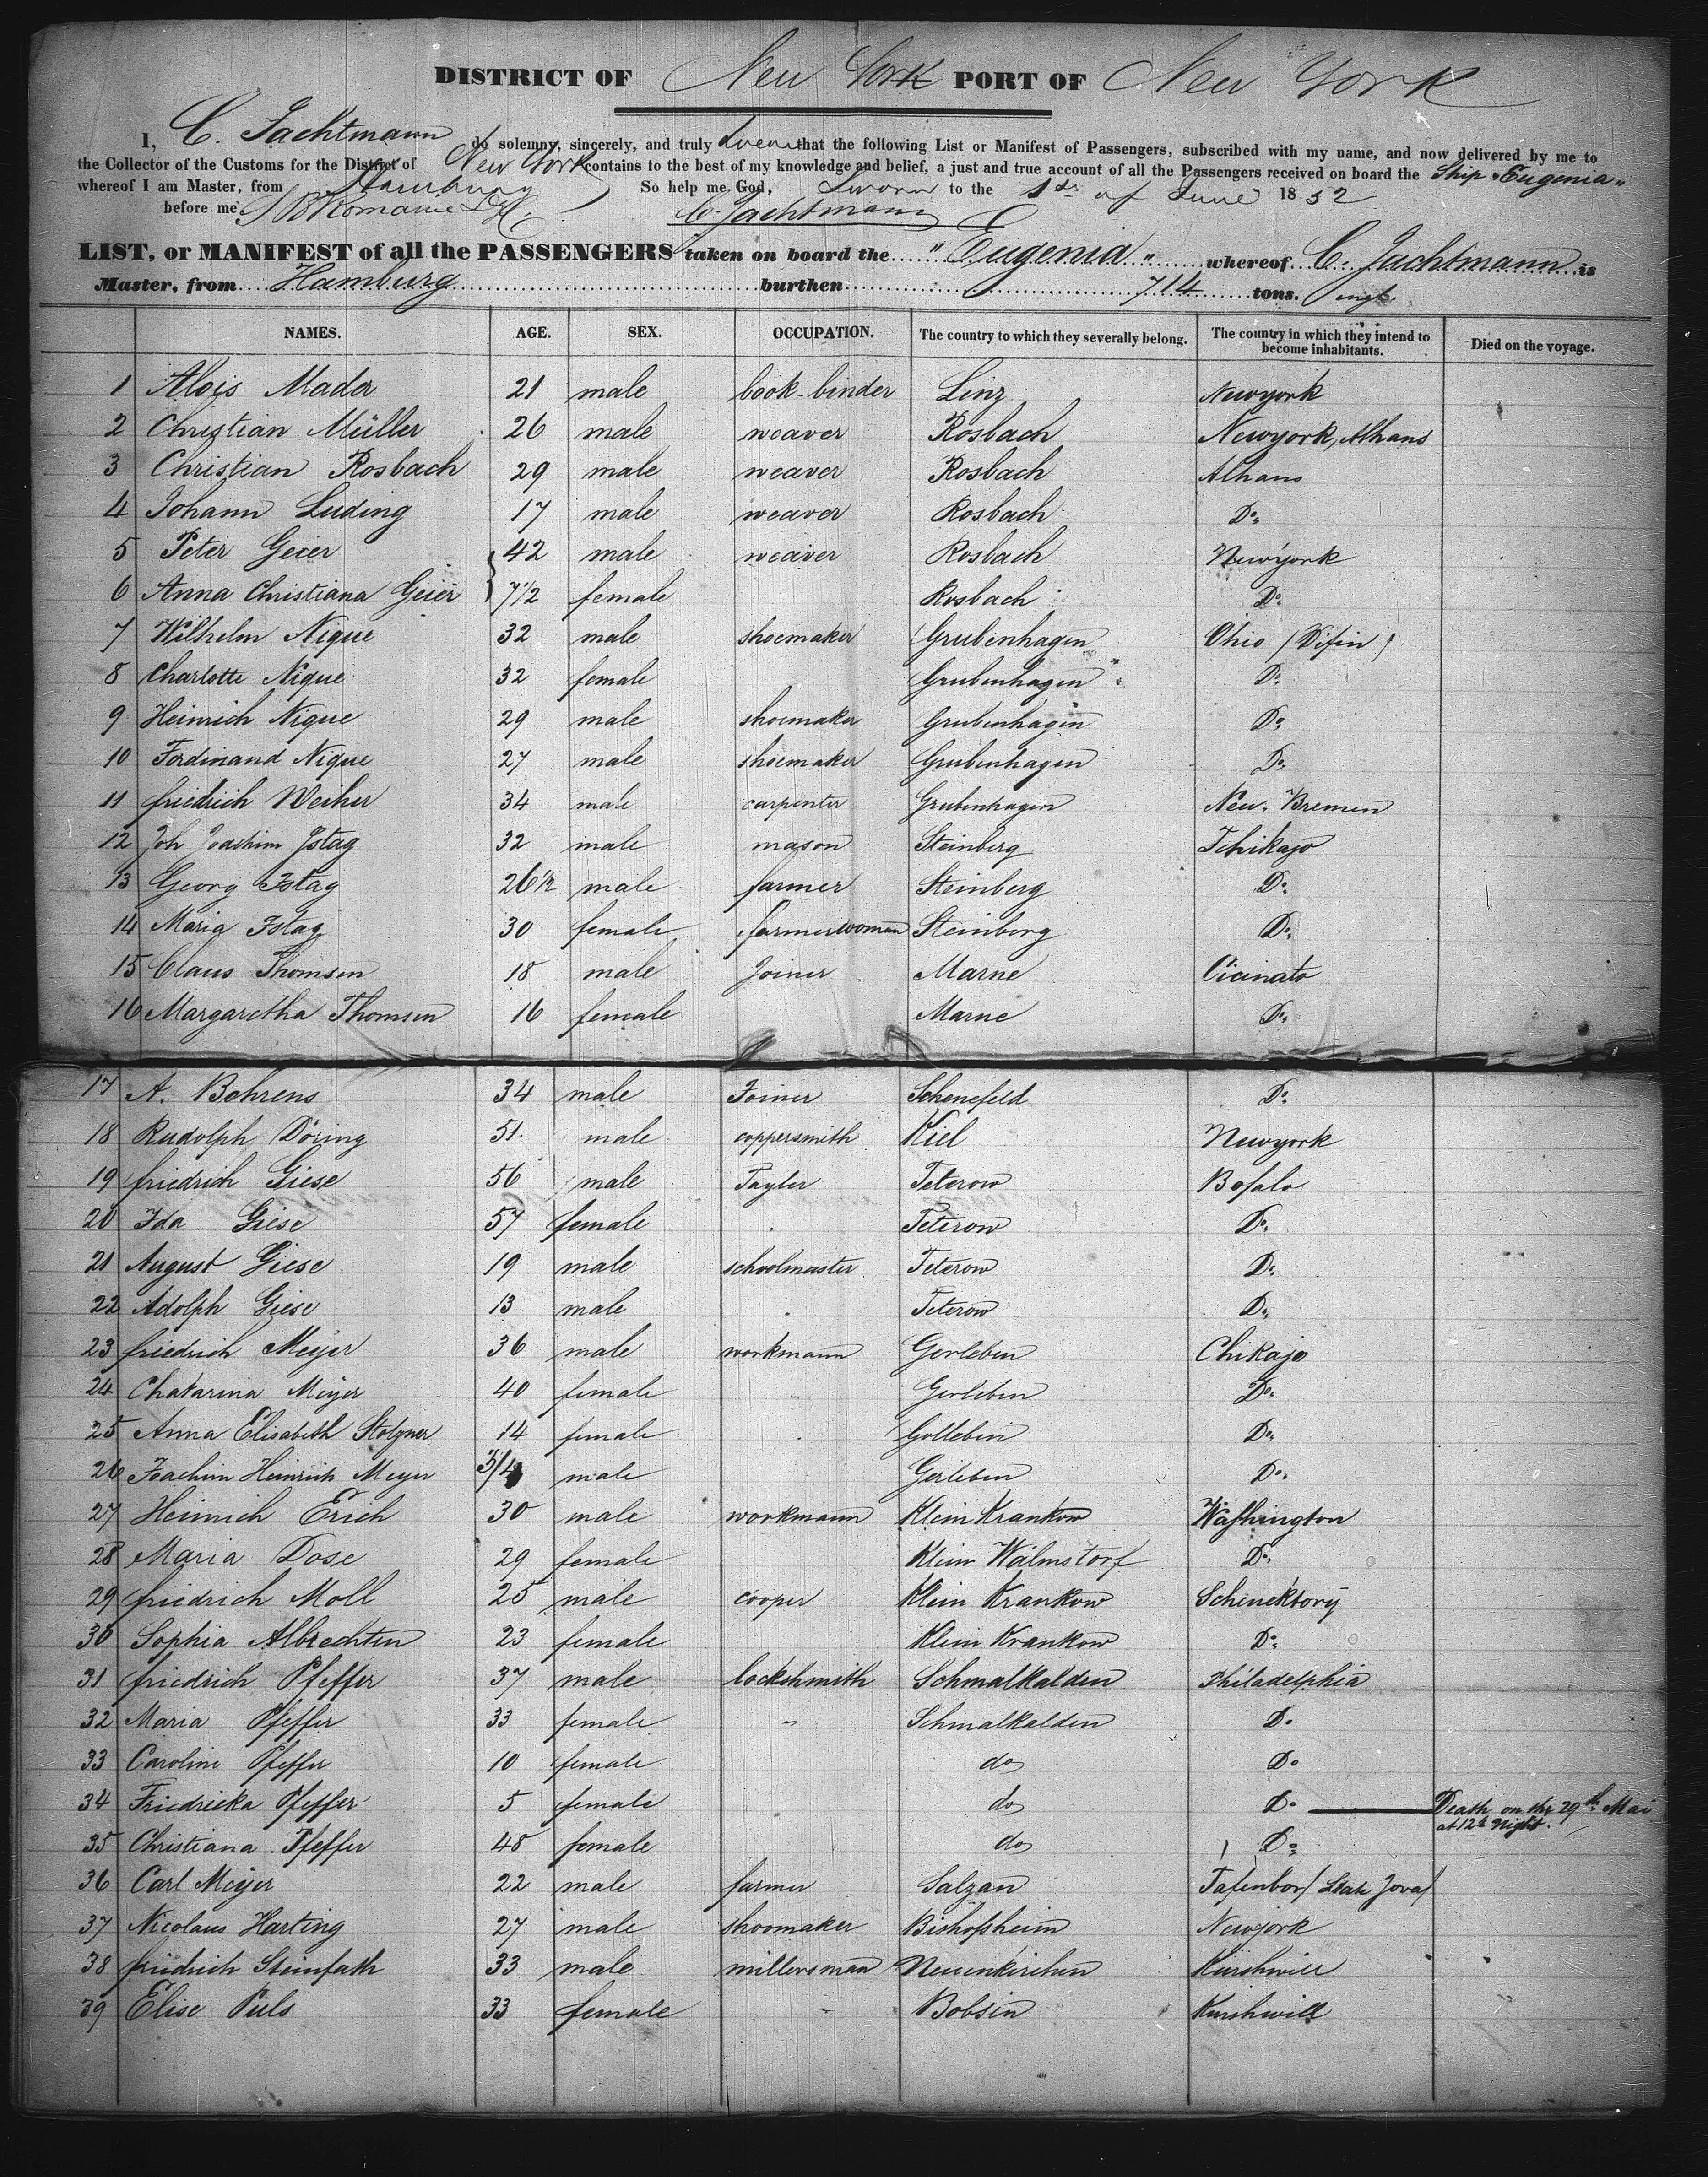 DISTRICT OF New York PORT OF New York
I, C. Jachtmann do solemny, sincerely, and truly swear that the following List or Manifest of Passengers, subscribed with my name, and now delivered by me to
the Collector of the Customs for the District of New York contains to the best of my knowledge and belief, a just and true account of all the Passengers received on board the Ship "Eugenia"
whereof I am Master, from Hamburg So help me God, Sworn to the 1st of June 1852
before me C. Jachtmann
LIST, or MANIFEST of all the PASSENGERS taken on board the "Eugenia" whereof C. Jachtmann is
Master, from Hamburg burthen 714 tons.
NAMES. AGE. SEX. OCCUPATION. The country to which they severally belong. The country in which they intend to become inhabitants. Died on the voyage.
1 Alois Mader 21 male book-binder Linz Newyork
2 Christian Müller 26 male weaver Rosbach Newyork, Alhans
3 Christian Rosbach 29 male weaver Rosbach Alhans
4 Johann Luding 17 male weaver Rosbach Do
5 Peter Geier 42 male weaver Rosbach Newyork
6 Anna Christiana Geier 7 1/2 female Rosbach Do
7 Wilhelm Nique 32 male shoemaker Grubenhagen Ohio / Difin /
8 Charlotte Nique 32 female Grubenhagen Do
9 Heinrich Nique 29 male shoemaker Grubenhagen Do
10 Ferdinand Nique 27 male shoemaker Grubenhagen Do
11 friedrich Weiher 34 male carpenter Grubenhagen New. Bremen
12 Joh Joachim Istag 32 male mason Steinberg Tchikajo
13 Georg Istag 26 1/2 male farmer Steinberg Do
14 Maria Istag 30 female farmerwoman Steinberg Do
15 Claus Thomsen 18 male Joiner Marne Cicinato
16 Margaretha Thomsen 16 female Marne Do
17 A. Bohrens 34 male Joiner Schenefeld Do
18 Rudolph Döring 51. male coppersmith Kiel Newyork
19 friedrich Giese 56 male Tayler Teterow Bofalo
20 Ida Giese 57 female Teterow Do
21 August Giese 19 male schoolmaster Teterow Do
22 Adolph Giese 13 male Teterow Do
23 friedrich Meyer 36 male workmann Gerleben Chikajo
24 Chatarina Meyer 40 female Gerleben Do
25 Anna Elisabeth Stolzner 14 female Gollebin Do
26 Joachim Heinrich Meyer 3/4 male Gerleben Do
27 Heinrich Erich 30 male workmann Klein Krankow Washington
28 Maria Dose 29 female Klein Walmstorf Do
29 friedrich Moll 25 male cooper Klein Krankow Schenektory
30 Sophia Albrechten 23 female Klein Krankow Do
31 friedrich Pfeffer 37 male lockshmith Schmalkalden Philadelphia
32 Maria Pfeffer 33 female Schmalkalden Do
33 Caroline Pfeffer 10 female do Do
34 Friedricka Pfeffer 5 female do Do Death on the 29th Mai
at 12th Night.
35 Christiana Pfeffer 48 female do Do
36 Carl Meyer 22 male farmer Salzan Tafenbor/ State Jova/
37 Nicolaus Harting 27 male shoomaker Bishofsheim Newyork
38 friedrich Steinfath 33 male millersman Neuenkirchen
39 Elise Puls 33 female Bobsin